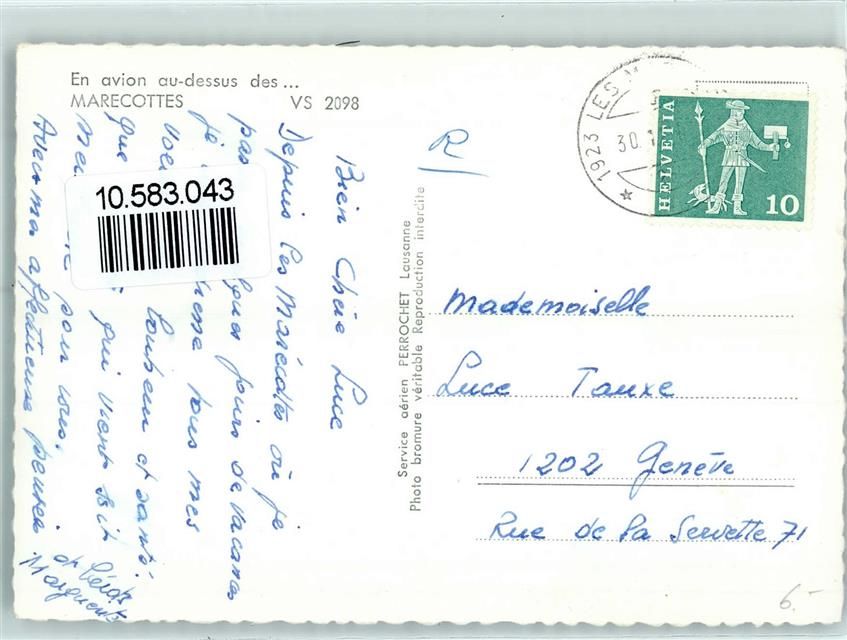 En avion au-dessus des...
MARECOTTES VS 2098
Bien Chère Luce
Depuis les Marécottes où je
pas jours de vacances
je tous mes
voeux bonheur et santé.
que qui vient soit
pour vous.
Avec ma affectueuse pensée.
Marguerite
R
Service aérien PERROCHET Lausanne
Photo bromure véritable Reproduction interdite
1923 LES M
30.1
HELVETIA
10
Mademoiselle
Luce Tauxe
1202 Genève
Rue de la Servette 71
10.583.043
6.-